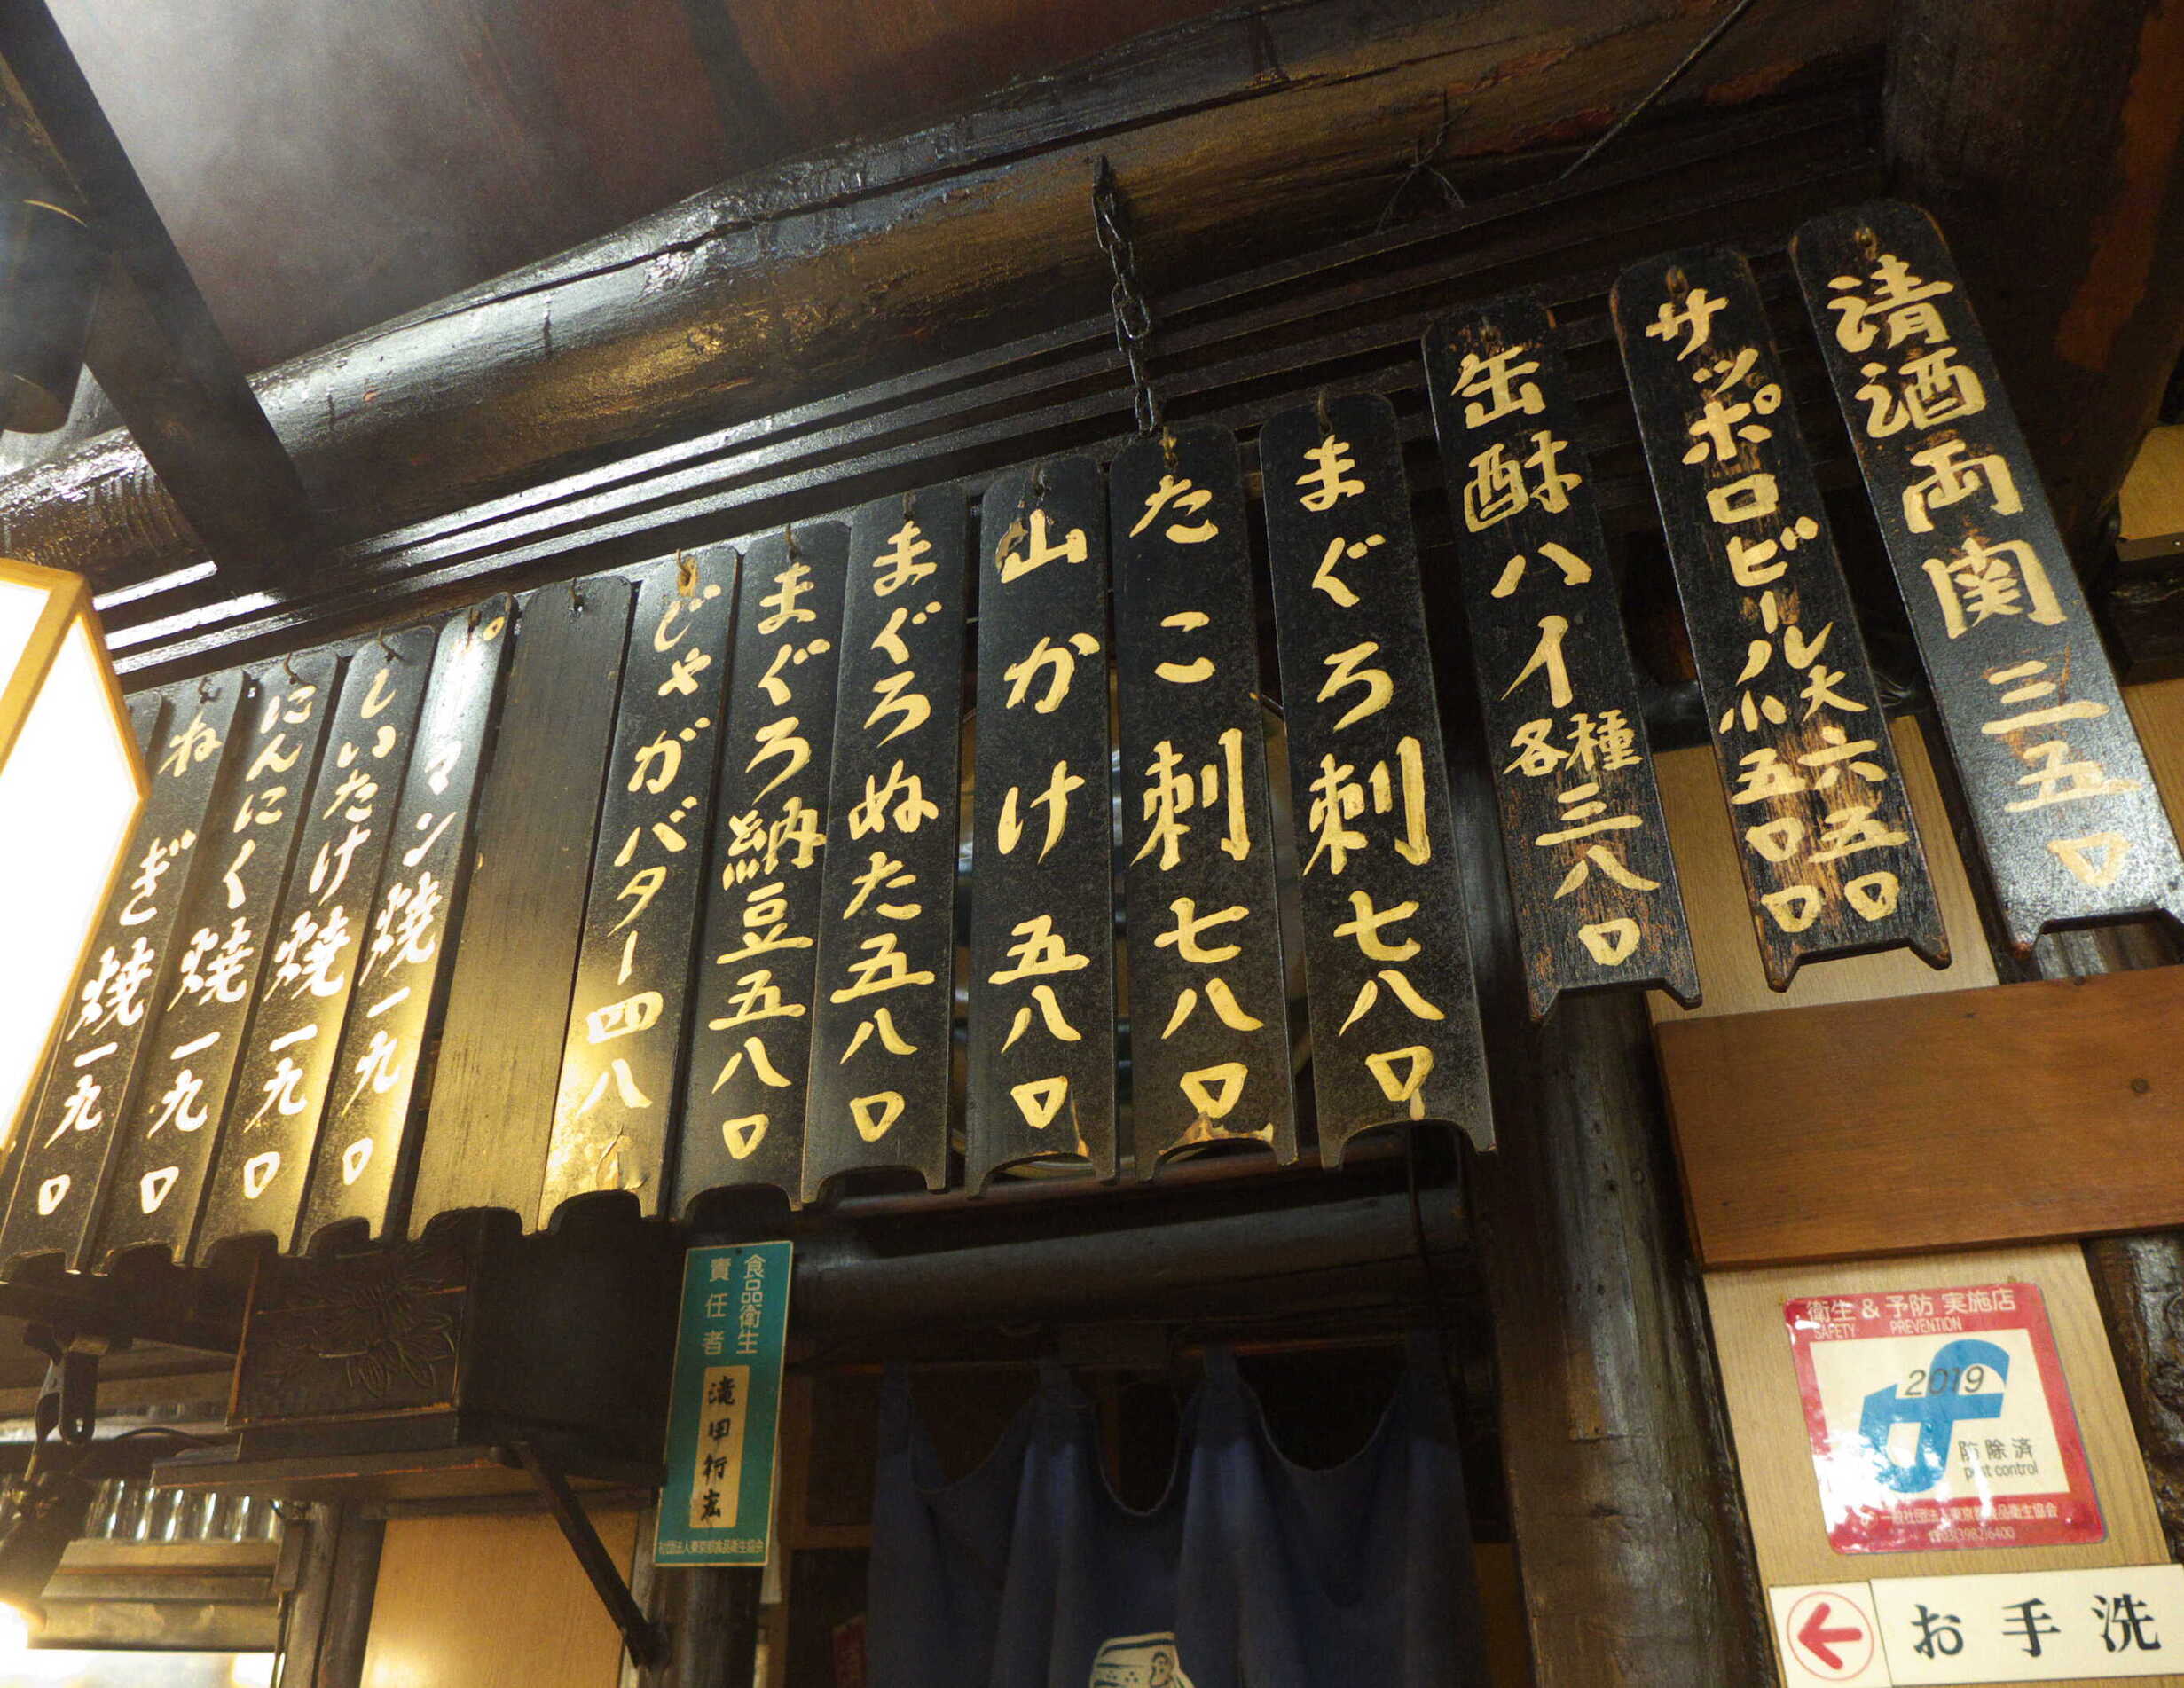 清酒両関 三五〇
サッポロビール大六五〇
小五〇〇
缶酎ハイ各種三八〇
まぐろ刺七八〇
たこ刺七八〇
山かけ五八〇
まぐろぬた五八〇
まぐろ納豆五八〇
じゃがバター四八
ピーマン焼一九〇
しいたけ焼一九〇
にんにく焼一九〇
ねぎ焼一九〇
食品衛生
責任者
滝田行宏
社団法人東京都食品衛生協会
衛生 & 予防 実施店
SAFETY PREVENTION
2019
防除済
pest control
一般社団法人東京都食品衛生協会
お手洗